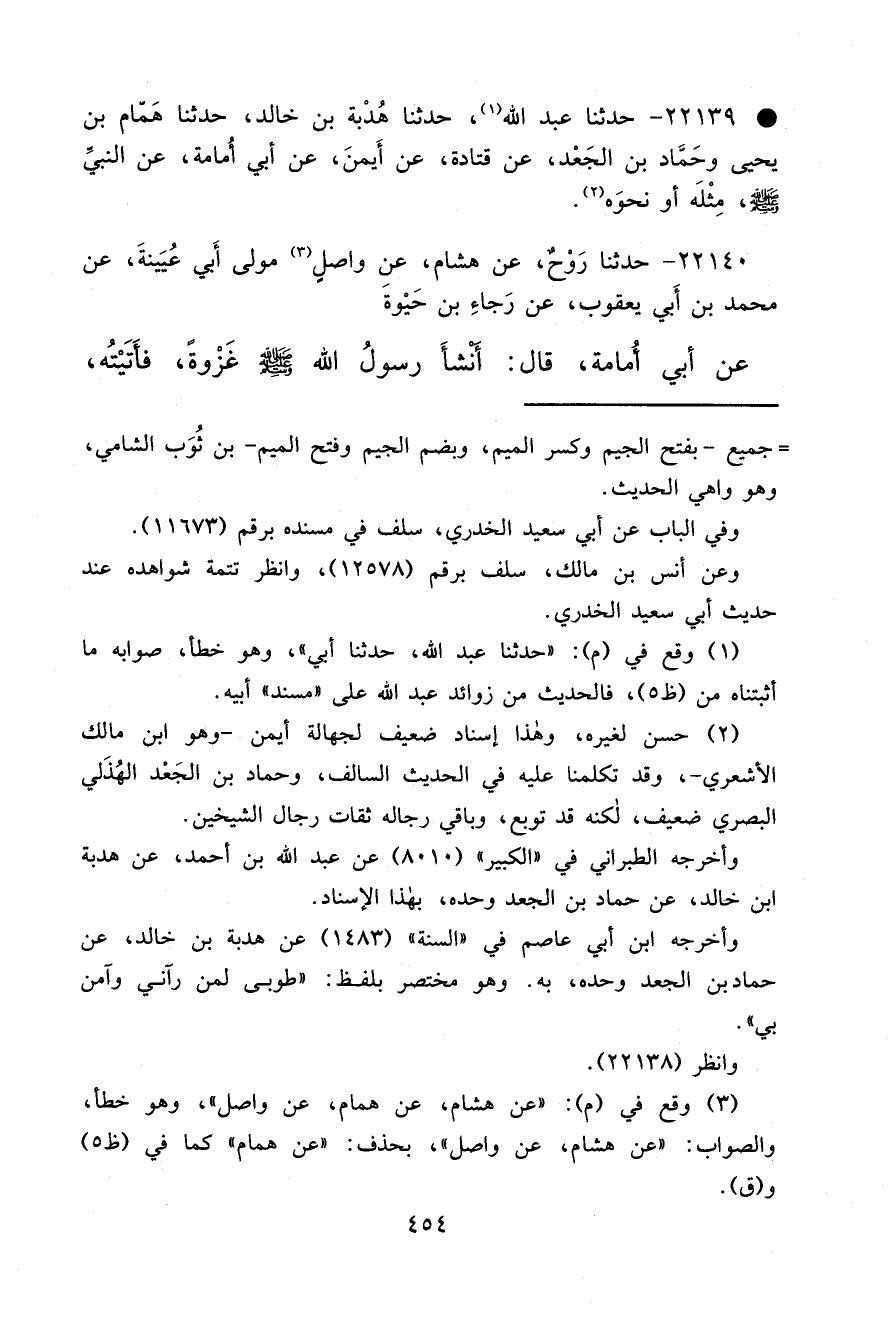 ● ٢٢١٣٩- حدثنا عبد الله(١)، حدثنا هُدْبة بن خالد، حدثنا هَمّام بن
يحيى وحَمَّاد بن الجَعْد، عن قتادة، عن أيمنَ، عن أبي أُمامة، عن النبيِّ
ﷺ، مِثْلَه أو نحوَه(٢).
٢٢١٤٠- حدثنا رَوْحٌ، عن هشام، عن واصلٍ(٣) مولى أَبي عُيَينةَ، عن
محمد بن أَبي يعقوب، عن رَجاءِ بن حَيْوةَ
عن أبي أُمامة، قال: أَنْشأَ رسولُ الله ﷺ غَزْوةً، فأَتَيْتُه،
= جميع - بفتح الجيم وكسر الميم، وبضم الجيم وفتح الميم- بن ثُوَب الشامي،
وهو واهي الحديث.
وفي الباب عن أبي سعيد الخدري، سلف في مسنده برقم (١١٦٧٣).
وعن أنس بن مالك، سلف برقم (١٢٥٧٨)، وانظر تتمة شواهده عند
حديث أبي سعيد الخدري.
(١) وقع في (م): «حدثنا عبد الله، حدثنا أبي»، وهو خطأ، صوابه ما
أثبتناه من (ظ٥)، فالحديث من زوائد عبد الله على «مسند» أبيه.
(٢) حسن لغيره، وهٰذا إسناد ضعيف لجهالة أيمن -وهو ابن مالك
الأشعري-، وقد تكلمنا عليه في الحديث السالف، وحماد بن الجَعْد الهُذَلي
البصري ضعيف، لٰكنه قد توبع، وباقي رجاله ثقات رجال الشيخين.
وأخرجه الطبراني في «الكبير» (٨٠١٠) عن عبد الله بن أحمد، عن هدبة
ابن خالد، عن حماد بن الجعد وحده، بهٰذا الإسناد.
وأخرجه ابن أبي عاصم في «السنة» (١٤٨٣) عن هدبة بن خالد، عن
حمادبن الجعد وحده، به. وهو مختصر بلفظ: «طوبى لمن رآني وآمن
بي».
وانظر (٢٢١٣٨).
(٣) وقع في (م): «عن هشام، عن همام، عن واصل»، وهو خطأ،
والصواب: «عن هشام، عن واصل»، بحذف: «عن همام» كما في (ظ٥)
و(ق).
٤٥٤